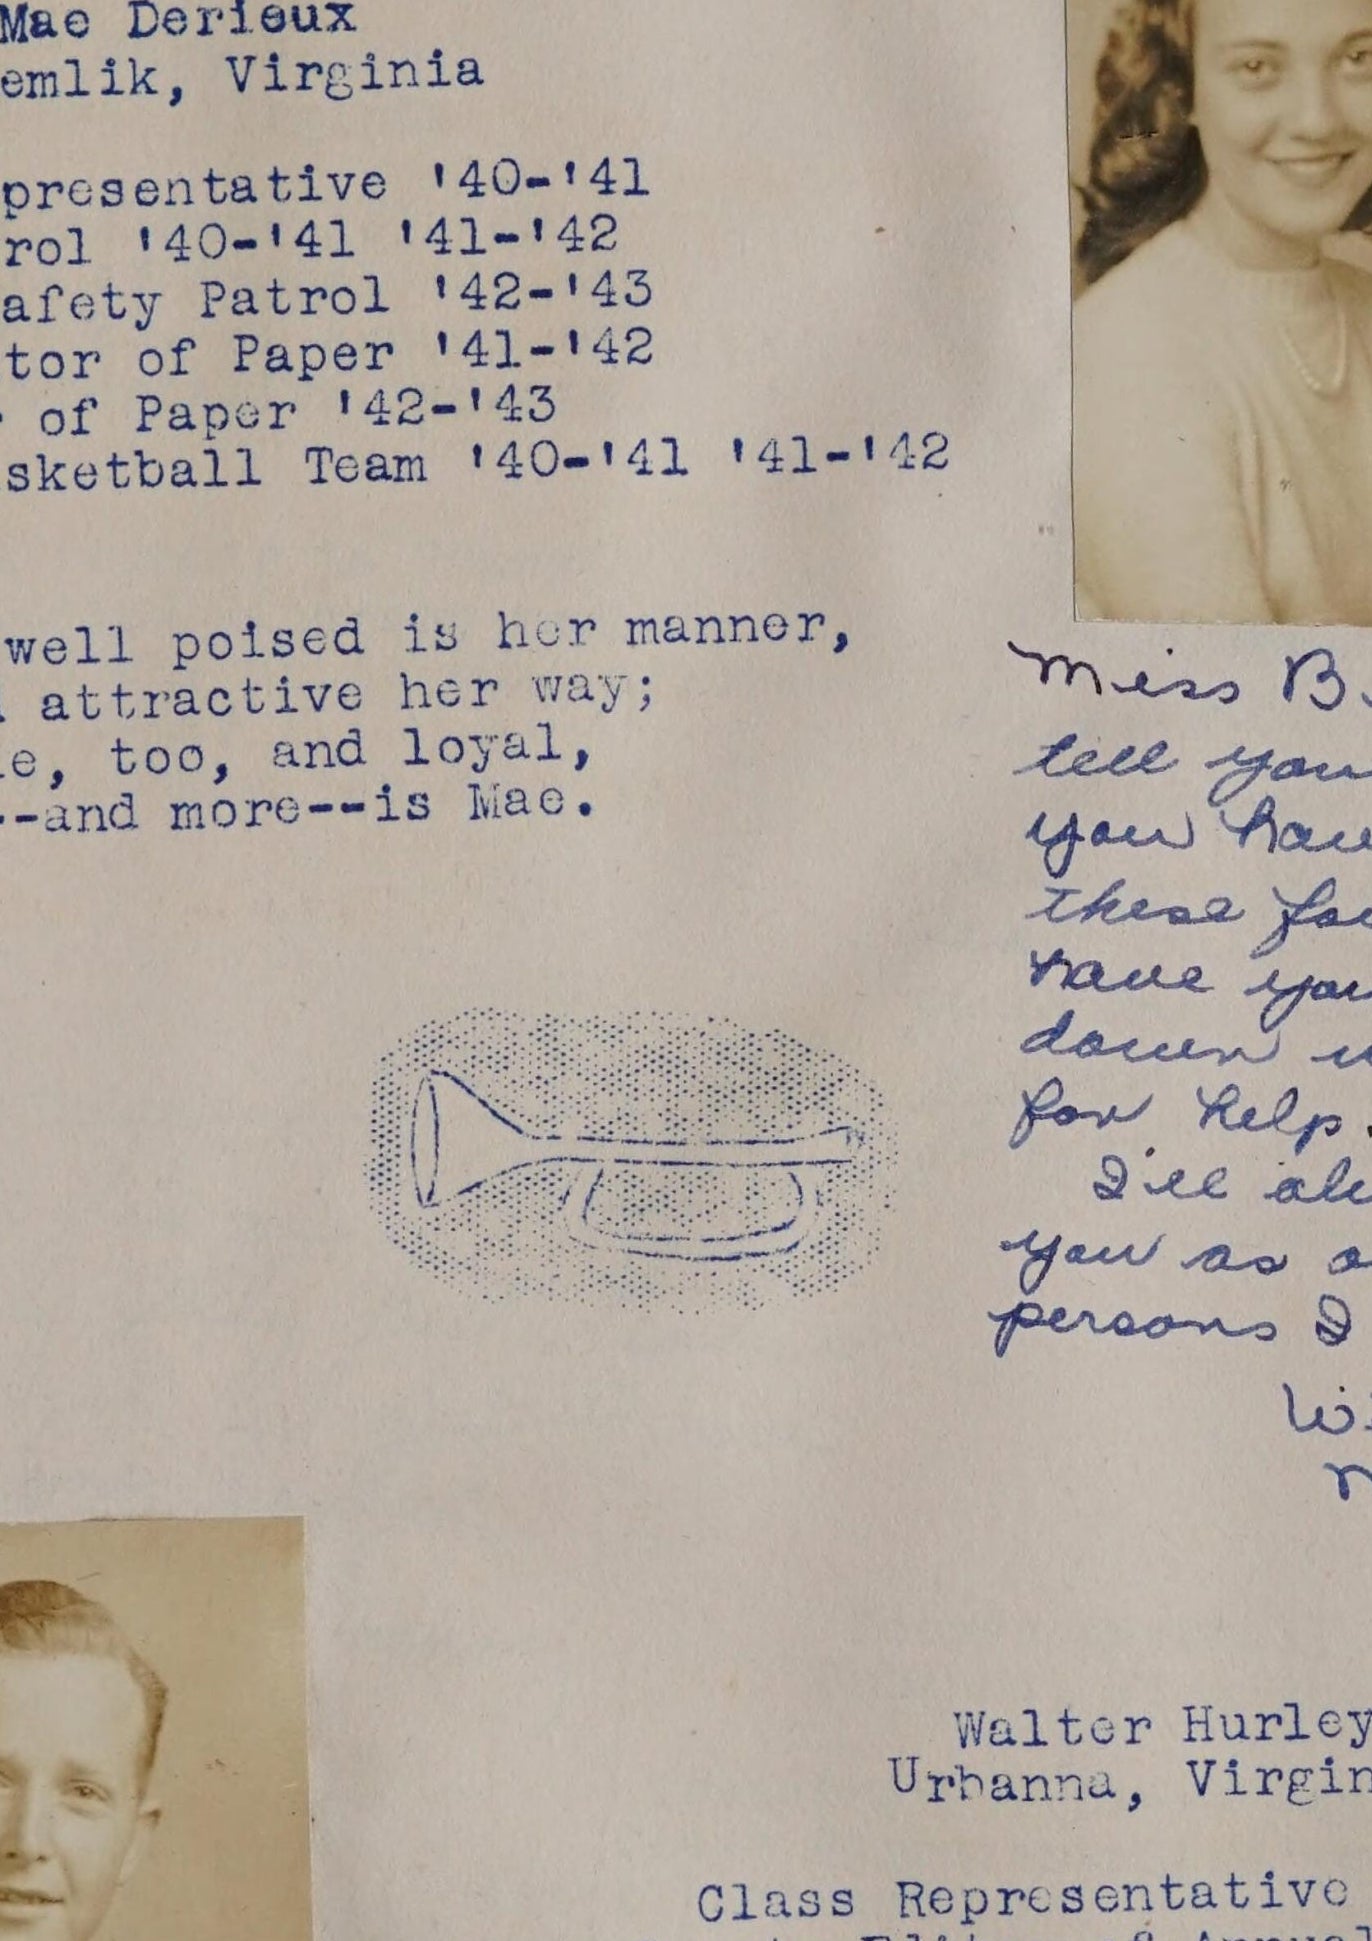 Mae Derieux
emlik, Virginia
presentative '40-'41
rol '40-'41 '41-'42
afety Patrol '42-'43
tor of Paper '41-'42
of Paper '42-'43
sketball Team '40-'41 '41-'42
well poised is her manner,
attractive her way;
e, too, and loyal,
--and more--is Mae.
Miss B
tell you
you hav
these fo
have you
down
for help.
I'll al
you as
persons I
Wi
Walter Hurley
Urbanna, Virgin
Class Representative